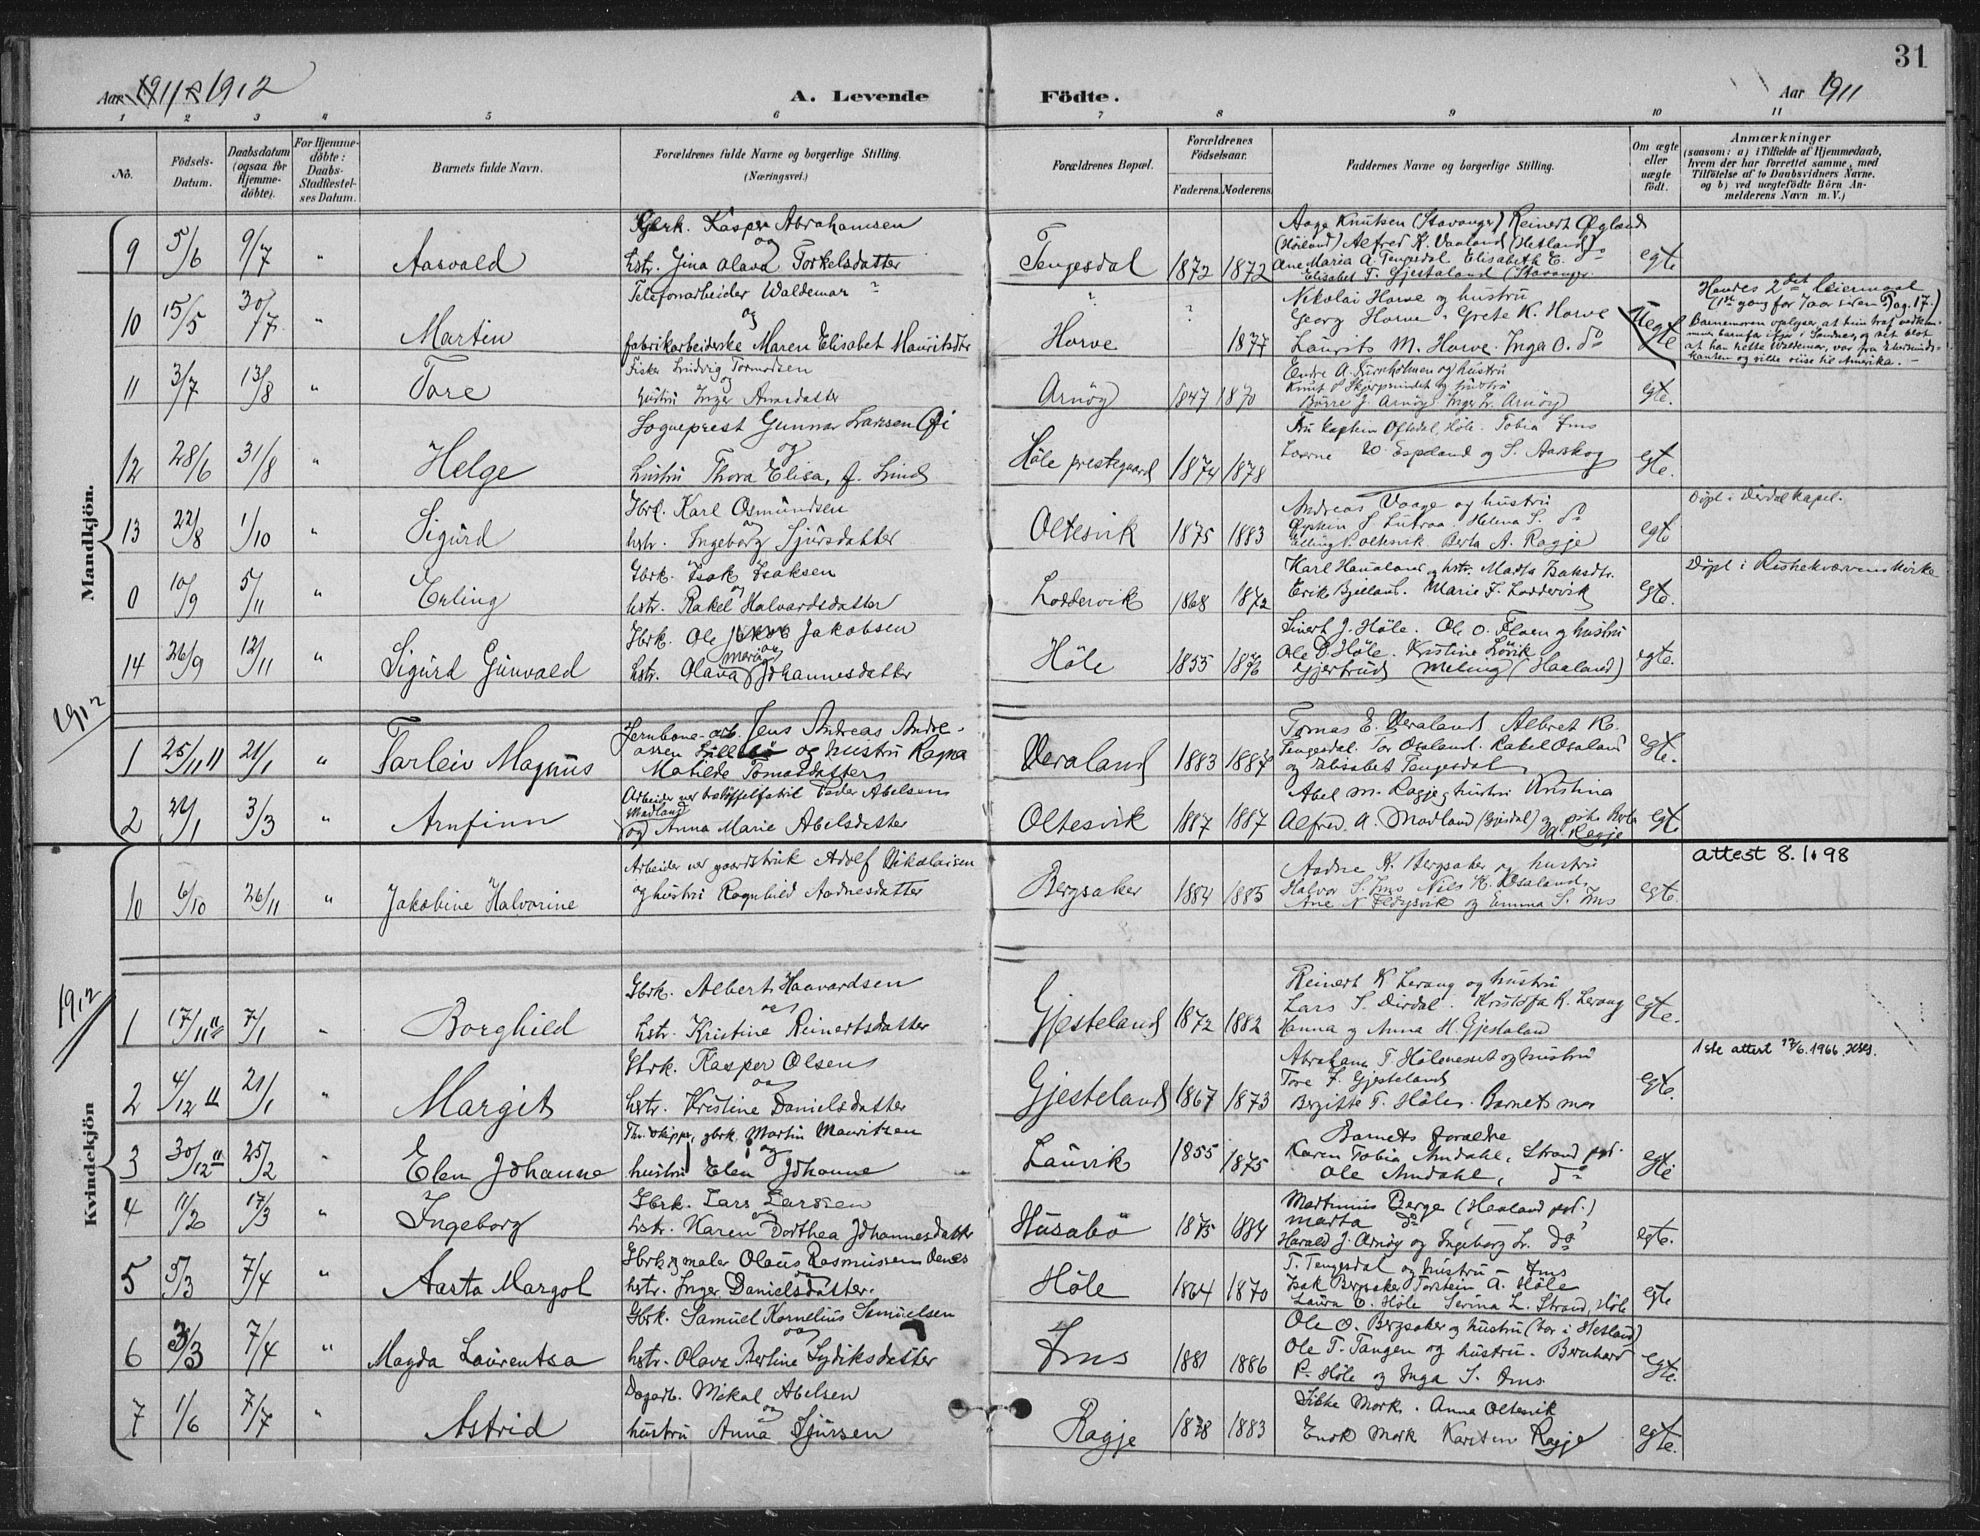 31
Aar 1911 & 1912
A. Levende Födte.
Aar 1911
1 2 3 4 5 6 7 8 9 10 11
No.
Födsels-Datum.
Daabsdatum (ogsaa for Hjemmedöbte).
For Hjemmedöbte: Daabs-Stadfæstelses Datum.
Barnets fulde Navn.
Forældrenes fulde Navne og borgerlige Stilling. (Næringsvei.)
Forældrenes Bopæl.
Forældrenes Födselsaar.
Faderens. Moderens.
Faddernes Navne og borgerlige Stilling.
Om ægte eller uægte födt.
Anmærkninger (saasom: a) i Tilfælde af Hjemmedaab, hvem der har forrettet samme, med Tilföielse af to Daabsvidners Navne, og b) ved uægtefödte Börn Anmelderens Navn m. V.)
Mandkjön.
9 5/6 9/7 " Aasvald
Gbrk. Kasper Abrahamsen
og
hstr. Gina Olava Torkelsdatter
Tengesdal 1872 1872
Aage Knutsen (Stavanger) Reinert Øgland
(Høiland) Alfred K. Vaaland (Hetland)
Ane Maria A. Tengesdal Elisabeth E. do
Elisabet T. Gjestaland (Stavanger
egte
10 15/5 30/7 " Martin
Telefonarbeider Waldemar ?
og
fabrikarbeiderske Maren Elisabet Mauritsdtr
Horve ? ? 1877
Nikolai Horve og hustru
Georg Horve. Grete K. Horve
Laurits M. Horve. Inga O. do
Uegte
Hendes 2det leiermaal
(1ste gang for 7 aar siden Pag. 17.)
Barnemoren oplyser, at hun traf vedkommende barnefar i Sandnes, og vet blot
at han hette Waldemar, var fra Ekersundskanten og vilde reise til Amerika.
11 3/7 13/8 " Tore
Fisker Ludvig Tormodsen
og
hustru Inger Annasdatter
Arnøy 1847 1870
Endre A. hustru
Knut S. og hustru
Børre J. Arnøy Inger L. Arnøy
egte.
12 28/6 31/8 " Helge
Sogneprest Gunnar Larsen Øi
og
hustru Thora Elisa, f. Lind
Høle prestegaard 1874 1878
Fru kaptein Oftedal, Høle. Tobia Ims
W. Espeland og S. Aarskog
egte.
13 22/8 1/10 " Sigurd
Gbrk. Karl Osmundsen
og
hstr. Ingeborg Sjursdatter
Oltesvik 1875 1883
Andreas Vaage og hustru
S. Lutraa. Helena S. do
Elling P. Oltesvik. Berta A. Ragje
egte
Døpt i Dirdal kapel.
0 10/9 5/11 " Erling
Gbrk. Isak Isaksen
og
hstr. Rakel Halvardsdatter
Loddervik 1868 1872
Karl Haualand og hstr. Madta Isaksdtr.
Erik Bjelland. Marie F. Loddervik
egte.
Døpt i Riskekværvens kirke
14 26/9 12/11 " Sigurd Gunvald
Gbrk. Ole Jakob Jakobsen
og
hstr. Olava Maria Johannesdatter
Høle 1855 1876
Sivert J. Høle. Ole O. Floen og hustru
Ole O. Høle. Kristine Lövik
Gjertrud Meling (Haaland)
egte.
1912
1 25/11 11 21/1 " Tarleiv Magnus
Jernbane-arb. Jens Andreas Andreassen og hustru Ragna
Matilde Tomasdatter
Veraland 1883 1887
Tomas E. Veraland Albret K.
Tengesdal Tor Osaland. Rakel Osaland
og Elisabet Tengesdal
egte.
2 24/1 3/3 " Arnfinn
Arbeider ver træløffelfabrik Peder Abelsen
Madland
og Anna Marie Abelsdatter
Oltesvik 1887 1887
Abel M. Ragje og hustru Kristina
Alfred A. Madland (Gjesdal) og pike Berta
A. Ragje
egte
Kvindekjön
10 6/10 26/11 " Jakobine Halvorine
Arbeider ver gaardsbruk Adolf Nikolaisen
og hustru Ragnhild Aadnesdatter
Bergsaker 1884 1885
Aadne K. Bergsaker og hustru
Halvor S. Ims Nils K. Osaland
Ane N. og Emma S. Ims
egte.
attest 8.10.98
1912
1 17/11 11 7/1 " Borghild
Gbrk. Albert Haavardsen
og
hstr. Kristine Reinertsdatter
Gjesteland 1872 1882
Reinert K Lerang og hustru
Lars S. Dirdal. Kristofa K. Lerang
Hanna og Anna H. Gjestaland
egte.
2 4/12 11 21/1 " Margit
Gbrk. Kasper Olsen
og
hstr. Kristine Danielsdatter
Gjesteland 1867 1873
Abraham T. Hølenesset og hustru
Tore F. Gjesteland
Bergitte T. Høle. Barnets mor
egte.
1ste attest 17/6.1966
3 30/12 11 25/2 " Elen Johanne
skipper, gbrk. Martin Mauritsen
og
hustru Elen Johanne
Lauvik 1855 1875
Barnets foraldre
Karen Tobia Amdahl, Strand pgd.
Ole Amdahl, do
egte
4 11/2 17/3 " Ingeborg
Gbrk. Lars Larsen
og
hstr. Karen Dorthea Johannesdatter
Husabø 1875 1884
Martinius Berge (Haaland pgd.)
Marta do
Harald J. Arnøy og Ingeborg L. do
egte.
5 5/3 7/4 " Aasta Margot
Gbrk og maler Olaus Rasmussen
og
hstr. Inger Danielsdatter.
Høle 1864 1870
T. Tengesdal og hustru - Ims
Isak Bergsaker Torstein A. Høle
Laura O. Høle Serina L. Strand, Høle
egte
6 3/3 7/4 " Magda Laurentsa
Gbrk. Samuel Kornelius Samuelsen
og
hstr. Olava Bertine Sydiksdatter
Ims 1881 1886
Ole O. Bergsaker og hustru (bor i Hetland)
Ole T. Tangen og hustru. Bernhard
P. Høle og Inga S. Ims.
egte.
7 1/6 7/7 " Astrid
Dagarb. Mikal Abelsen
og
hustru Anna Sjursen
Ragje 1878 1883
Sikke Mork. Anna Oltesvik
Enok Mork Karsten Ragje
egte.